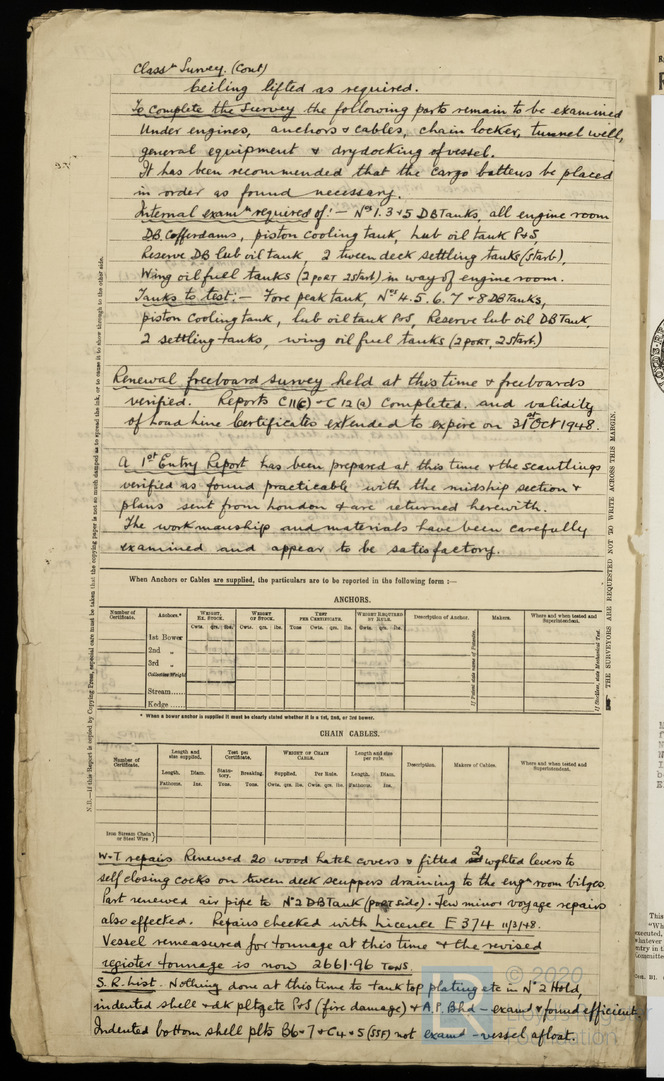 Class^n Survey. (Cont)
Ceiling lifted as required.
To complete the Survey the following parts remain to be examined
Under engines, anchors & cables, chain locker, tunnel well,
general equipment & drydocking of vessel.
It has been recommended that the cargo battens be placed
in order as found necessary.
Internal exam^n required of:— Nos 1. 3 & 5 DB Tanks, all engine room
DB. Cofferdams, piston cooling tank, Lub oil tank P&S,
Reserve DB lub oil tank, 2 tween deck settling tanks (Starb),
Wing oil fuel tanks (2 PORT 2 Starb) in way of engine room.
Tanks to test:— Fore peak tank, Nos 4. 5. 6. 7 & 8 DB Tanks,
piston cooling tank, lub oil tank P&S, Reserve lub oil DB Tank,
2 settling tanks, wing oil fuel tanks (2 PORT, 2 Starb.)
Renewal freeboard survey held at this time & freeboards
verified. Reports C11(c) - C12(a) completed. and validity
of Load Line Certificates extended to expire on 31st Oct 1948.
A 1st Entry Report has been prepared at this time & the scantlings
verified as found practicable with the midship section &
plans sent from London & are returned herewith.
The workmanship and materials have been carefully
examined and appear to be satisfactory.
When Anchors or Cables are supplied, the particulars are to be reported in the following form :—
ANCHORS.
Number of Certificate. Anchors.* WEIGHT, EX. STOCK. WEIGHT OF STOCK. TEST PER CERTIFICATE. WEIGHT REQUIRED BY RULE. Description of Anchor. Makers. Where and when tested and Superintendent.
Cwts. qrs. lbs. Cwts. qrs. lbs. Tons. Cwts. qrs. lbs. Cwts. qrs. lbs.
1st Bower
2nd „
3rd „
Collective Weight
Stream......
Kedge......
If Patent state name of Patentee.
If Stockless, state Mechanical Test.
* When a bower anchor is supplied it must be clearly stated whether it is a 1st, 2nd, or 3rd bower.
CHAIN CABLES.
Number of Certificate. Length and size supplied. Test per Certificate. WEIGHT OF CHAIN CABLE. Length and size per rule. Description. Makers of Cables. Where and when tested and Superintendent.
Length. Diam. Statutory. Breaking. Supplied. Per Rule. Length. Diam.
Fathoms. Ins. Tons. Tons. Cwts. qrs. lbs. Cwts. qrs. lbs. Fathoms. Ins.
Iron Stream Chain or Steel Wire }
W.T repairs Renewed 20 wood hatch covers & fitted 2 wghted levers to
self closing cocks on tween deck scuppers draining to the eng^n room bilges.
Part renewed air pipe to No 2 DB Tank (PORT side). Few minor voyage repairs
also effected. Repairs checked with Licence E 374 11/3/48.
Vessel remeasured for tonnage at this time & the revised
register tonnage is now 2661.96 TONS.
S.R. List. Nothing done at this time to tank top plating etc in No 2 Hold,
indented shell & dk pltg etc P&S (fire damage) & A.P. Bhd - examd & found efficient.
Indented bottom shell plts B6 & 7 & C4 & 5 (SSF) not examd - vessel afloat.
N.B.—If this Report is copied by Copying Press, especial care must be taken that the copying paper is not so much damped as to spread the ink, or to cause it to show through to the other side.
THE SURVEYORS ARE REQUESTED NOT TO WRITE ACROSS THIS MARGIN.
© 2020
LR
Lloyd's Register
Foundation